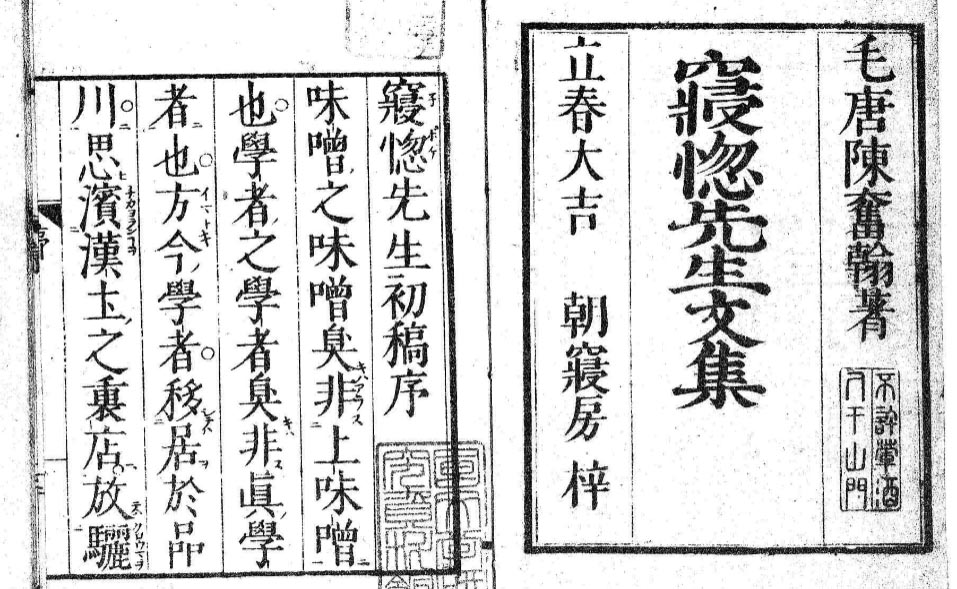 毛唐陳奮翰著
不許葷酒
入于山門
寢惚先生文集
立春大吉 朝寢房 梓
寢惚先生初稿序
味噌之味噌臭非上味噌
也學者之學者臭非眞學
者也方今學者移居於品
川思濱漢土之裏店放驪
序